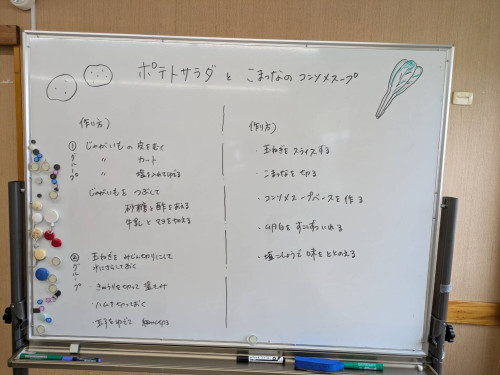 ポテトサラダ と こまつなの コンソメスープ
作り方)
① グループ
じゃがいも の 皮をむく
〃 カート
〃 塩を入れてゆでる
じゃがいもを つぶして
砂糖と酢をあえる
牛乳と マヨを加える
② グループ
・玉ねぎを みじんぎりにして
水にさらしておく
きゅうりを切って 塩でもみ
・ハムを切っておく
玉子をゆでて 細かく切る
作り方)
・玉ねぎを スライスする
・こまつなを 切る
・コンソメスープベースを 作る
・を すこしずついれる
・塩こしょうで 味を ととのえる